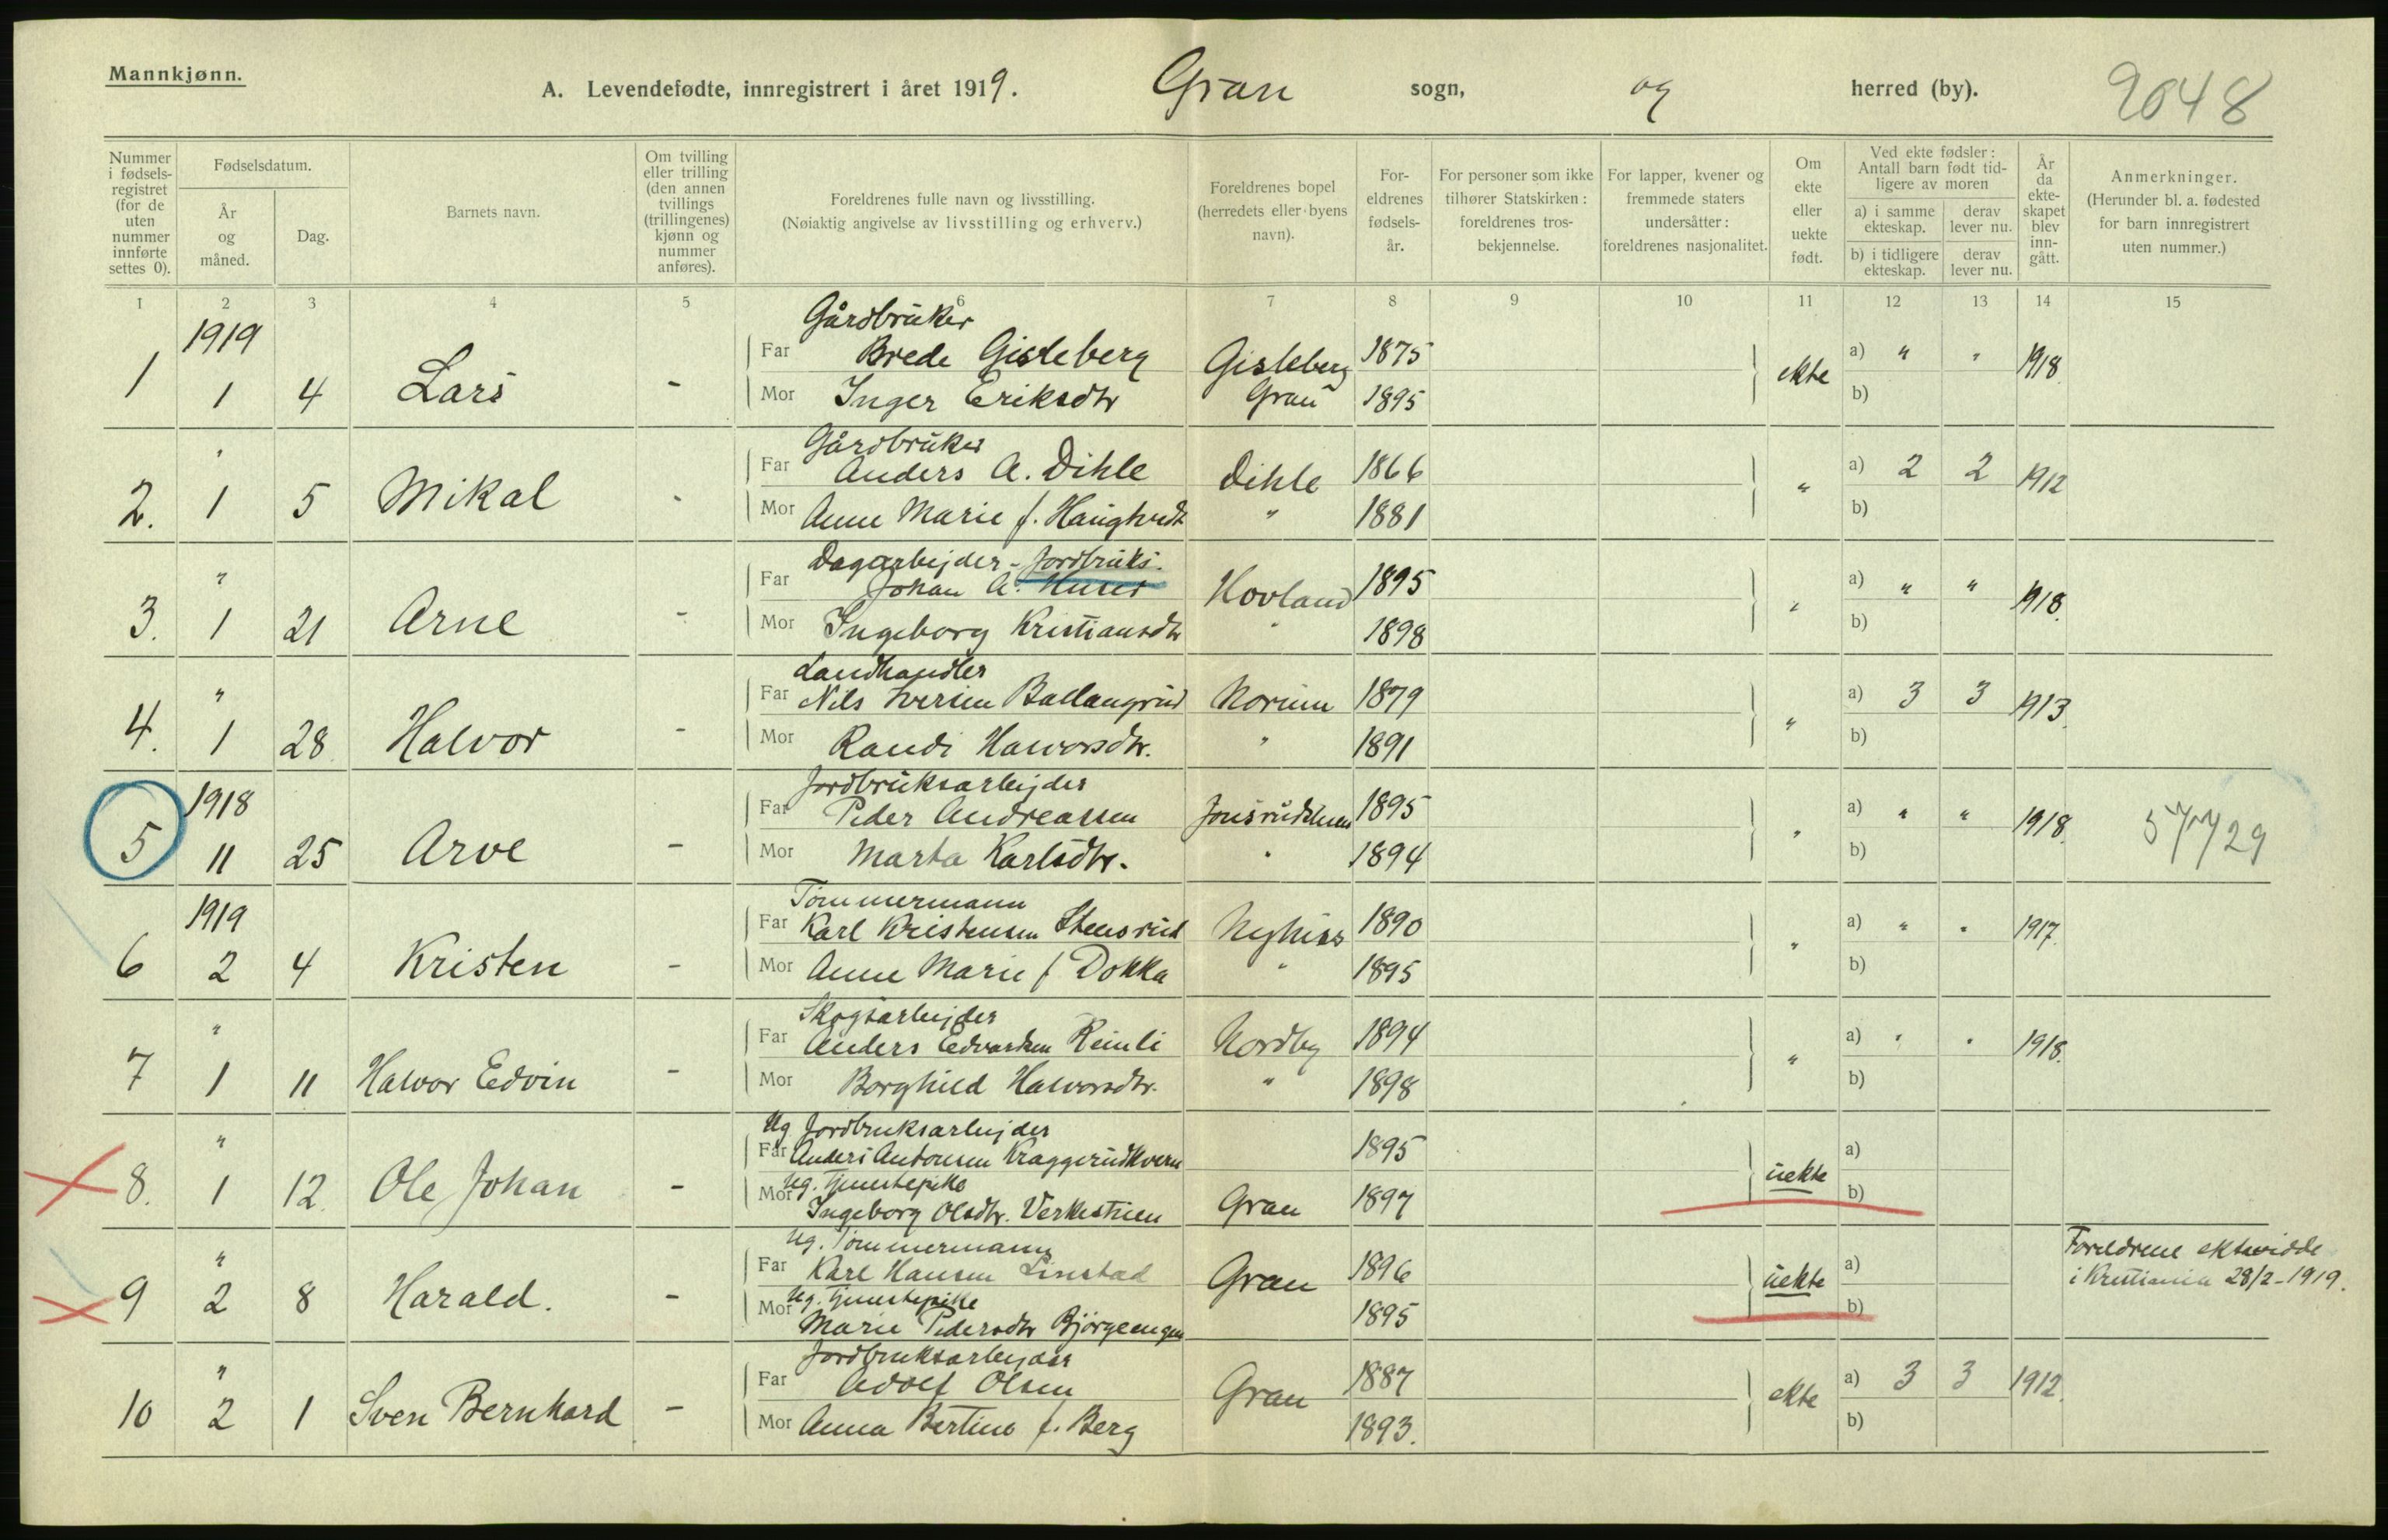 Mannkjønn.
A. Levendefødte, innregistrert i året 1919. Gran sogn, og herred (by). 2648
Nummer i fødselsregistret (for de uten nummer innførte settes 0).
Fødselsdatum.
År og måned.
Dag.
Barnets navn.
Om tvilling eller trilling (den annen tvillings (trillingenes) kjønn og nummer anføres).
Foreldrenes fulle navn og livsstilling.
(Nøiaktig angivelse av livsstilling og erhverv.)
Foreldrenes bopel (herredets eller byens navn).
Foreldrenes fødselsår.
For personer som ikke tilhører Statskirken: foreldrenes trosbekjennelse.
For lapper, kvener og fremmede staters undersåtter: foreldrenes nasjonalitet.
Om ekte eller uekte født.
Ved ekte fødsler: Antall barn født tidligere av moren
a) i samme ekteskap. derav lever nu.
b) i tidligere ekteskap. derav lever nu.
År da ekteskapet blev inngått.
Anmerkninger.
(Herunder bl. a. fødested for barn innregistrert uten nummer.)
1 2 3 4 5 6 7 8 9 10 11 12 13 14 15
1919 Gårdbruker
Far Brede Gisleberg Gisleberg 1875 a) " "
1 1 4 Lars - ekte 1918
Mor Inger Eriksdtr Gran 1895 b)
" Gårdbruker
Far Anders A. Dihle Dihle 1866 a) 2 2
2. 1 5 Mikal - " 1912
Mor Anne Marie f. Haughtvedt " 1881 b)
" Dagarbejder - Jordbruks.
Far Johan A. Hovland 1895 a) " "
3. 1 21 Arne - " 1918.
Mor Ingeborg Kristiansdtr " 1898 b)
" Landhandler
Far Nils Iversen Ballangrud Norum 1879 a) 3 3
4. 1 28 Halvor - " 1913
Mor Randi Halvorsdtr. " 1891 b)
1918 Jordbruksarbejder
Far Peder Andreassen 1895 a) " "
5 11 25 Arve - " 1918. 57729
Mor Marta Karlsdtr. " 1894 b)
1919 Tömmermann
Far Karl Kristensen Stensrud Nyhus 1890 a) " "
6 2 4 Kristen - " 1917.
Mor Anne Marie f Dokka " 1895 b)
" Skogsarbejder
Far Anders Edvardsen Reinli Nordby 1894 a) " "
7 1 11 Halvor Edvin - " 1918.
Mor Borghild Halvorsdtr. " 1898 b)
" Ug Jordbruksarbejder
Far Anders Antonsen Kraggerudkvern 1895 a)
8. 1 12. Ole Johan - uekte
Mor Ug. Tjenestepike b)
Ingeborg Olsdtr. Verkestuen Gran 1897
" Ug. Tömmermann
Far Karl Hansen Linstad Gran 1896 a) Foreldrene ektevidde
9 2 8 Harald. - uekte i Kristiania 28/2-1919.
Mor Ug. Tjenestepike b)
Marie Pedersdtr Bjørgeengen 1895
" Jordbruksarbejder
Far Adolf Olsen Gran 1887 a) 3 3
10 2 1 Sven Bernhard - ekte 1912.
Mor Anna Bertine f. Berg 1893. b)